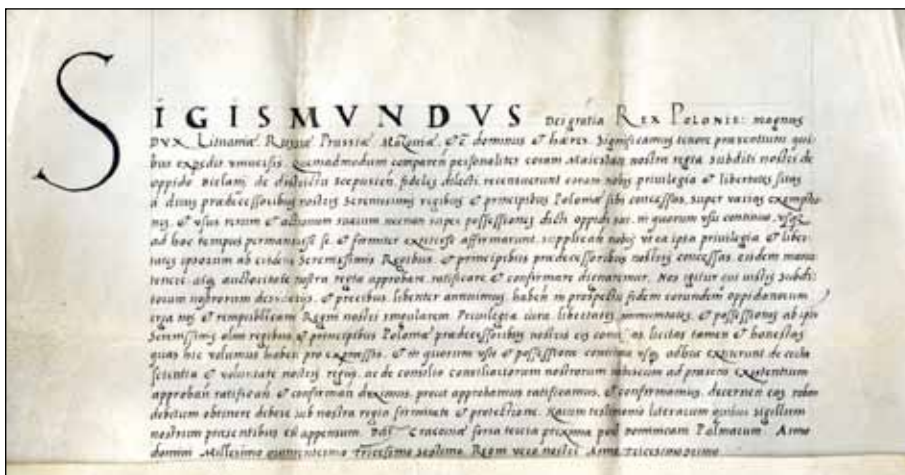 SIGISMVNDVS Dei gratia REX POLONIE: magnus
DVX Lituaniæ Russiæ Prussiæ Mazoviæ, &c dominus & hæres. Significamus tenore præsentium qui-
bus expedit vniuersis. Quemadmodum comparen personaliter coram Maiestate nostra regia subditi nostri de
oppido Bielam, de districtu Scepusien, fideles dilecti, recensuerunt coram nobis privilegia & libertates suas
a diuis prædecessoribus nostris Serenissimis regibus & principibus Poloniæ sibi concessas, super varias exemptio-
nes, & vsus rerum & actionum suarum necnon super possessiones dicti oppidi sui, in quorum vsu continuo, vsque
ad hoc tempus permansisse se, & firmiter extitisse affirmarunt, supplicati nobis vt ea ipsa privilegia & liber-
tates ipsorum ab eisdem Serenissimis Regibus & principibus prædecessoribus nostris concessas, eisdem manu
tenere atque auctoritate nostra regia approbare, ratificare & confirmare dignaremur. Nos igitur iustis subdi-
torum nostrorum & precibus libenter annuimus, haben in prospectu fidem eorundem oppidanorum
erga nos & rempublicam Regni nostri singularem. Privilegia iura, libertates immunitates, & possessiones ab ipsis
Serenissimis olim regibus & principibus Poloniæ prædecessoribus nostris eis licitas tamen & honestas
quas hic volumus haberi pro expressis, & in quorum vsu & possessione continua vsque adhuc extiterunt, de certa
scientia & voluntate nostris regiis, ac de consilio consiliariorum nostrorum nobiscum ad præsens existentium
approban ratifican & confirman duximus, prout approbamus ratificamus, & confirmamus, decernen eas robur
debitum obtinere debere sub nostra regia firmitate & protectione. Harum testimonio literarum quibus sigillum
nostrum præsentibus est appensum. Dat Cracoviæ feria tercia proxima post dominicam Palmarum. Anno
domini Millesimo quingentesimo Tricesimo septimo. Regni vero nostri Anno Tricesimo primo